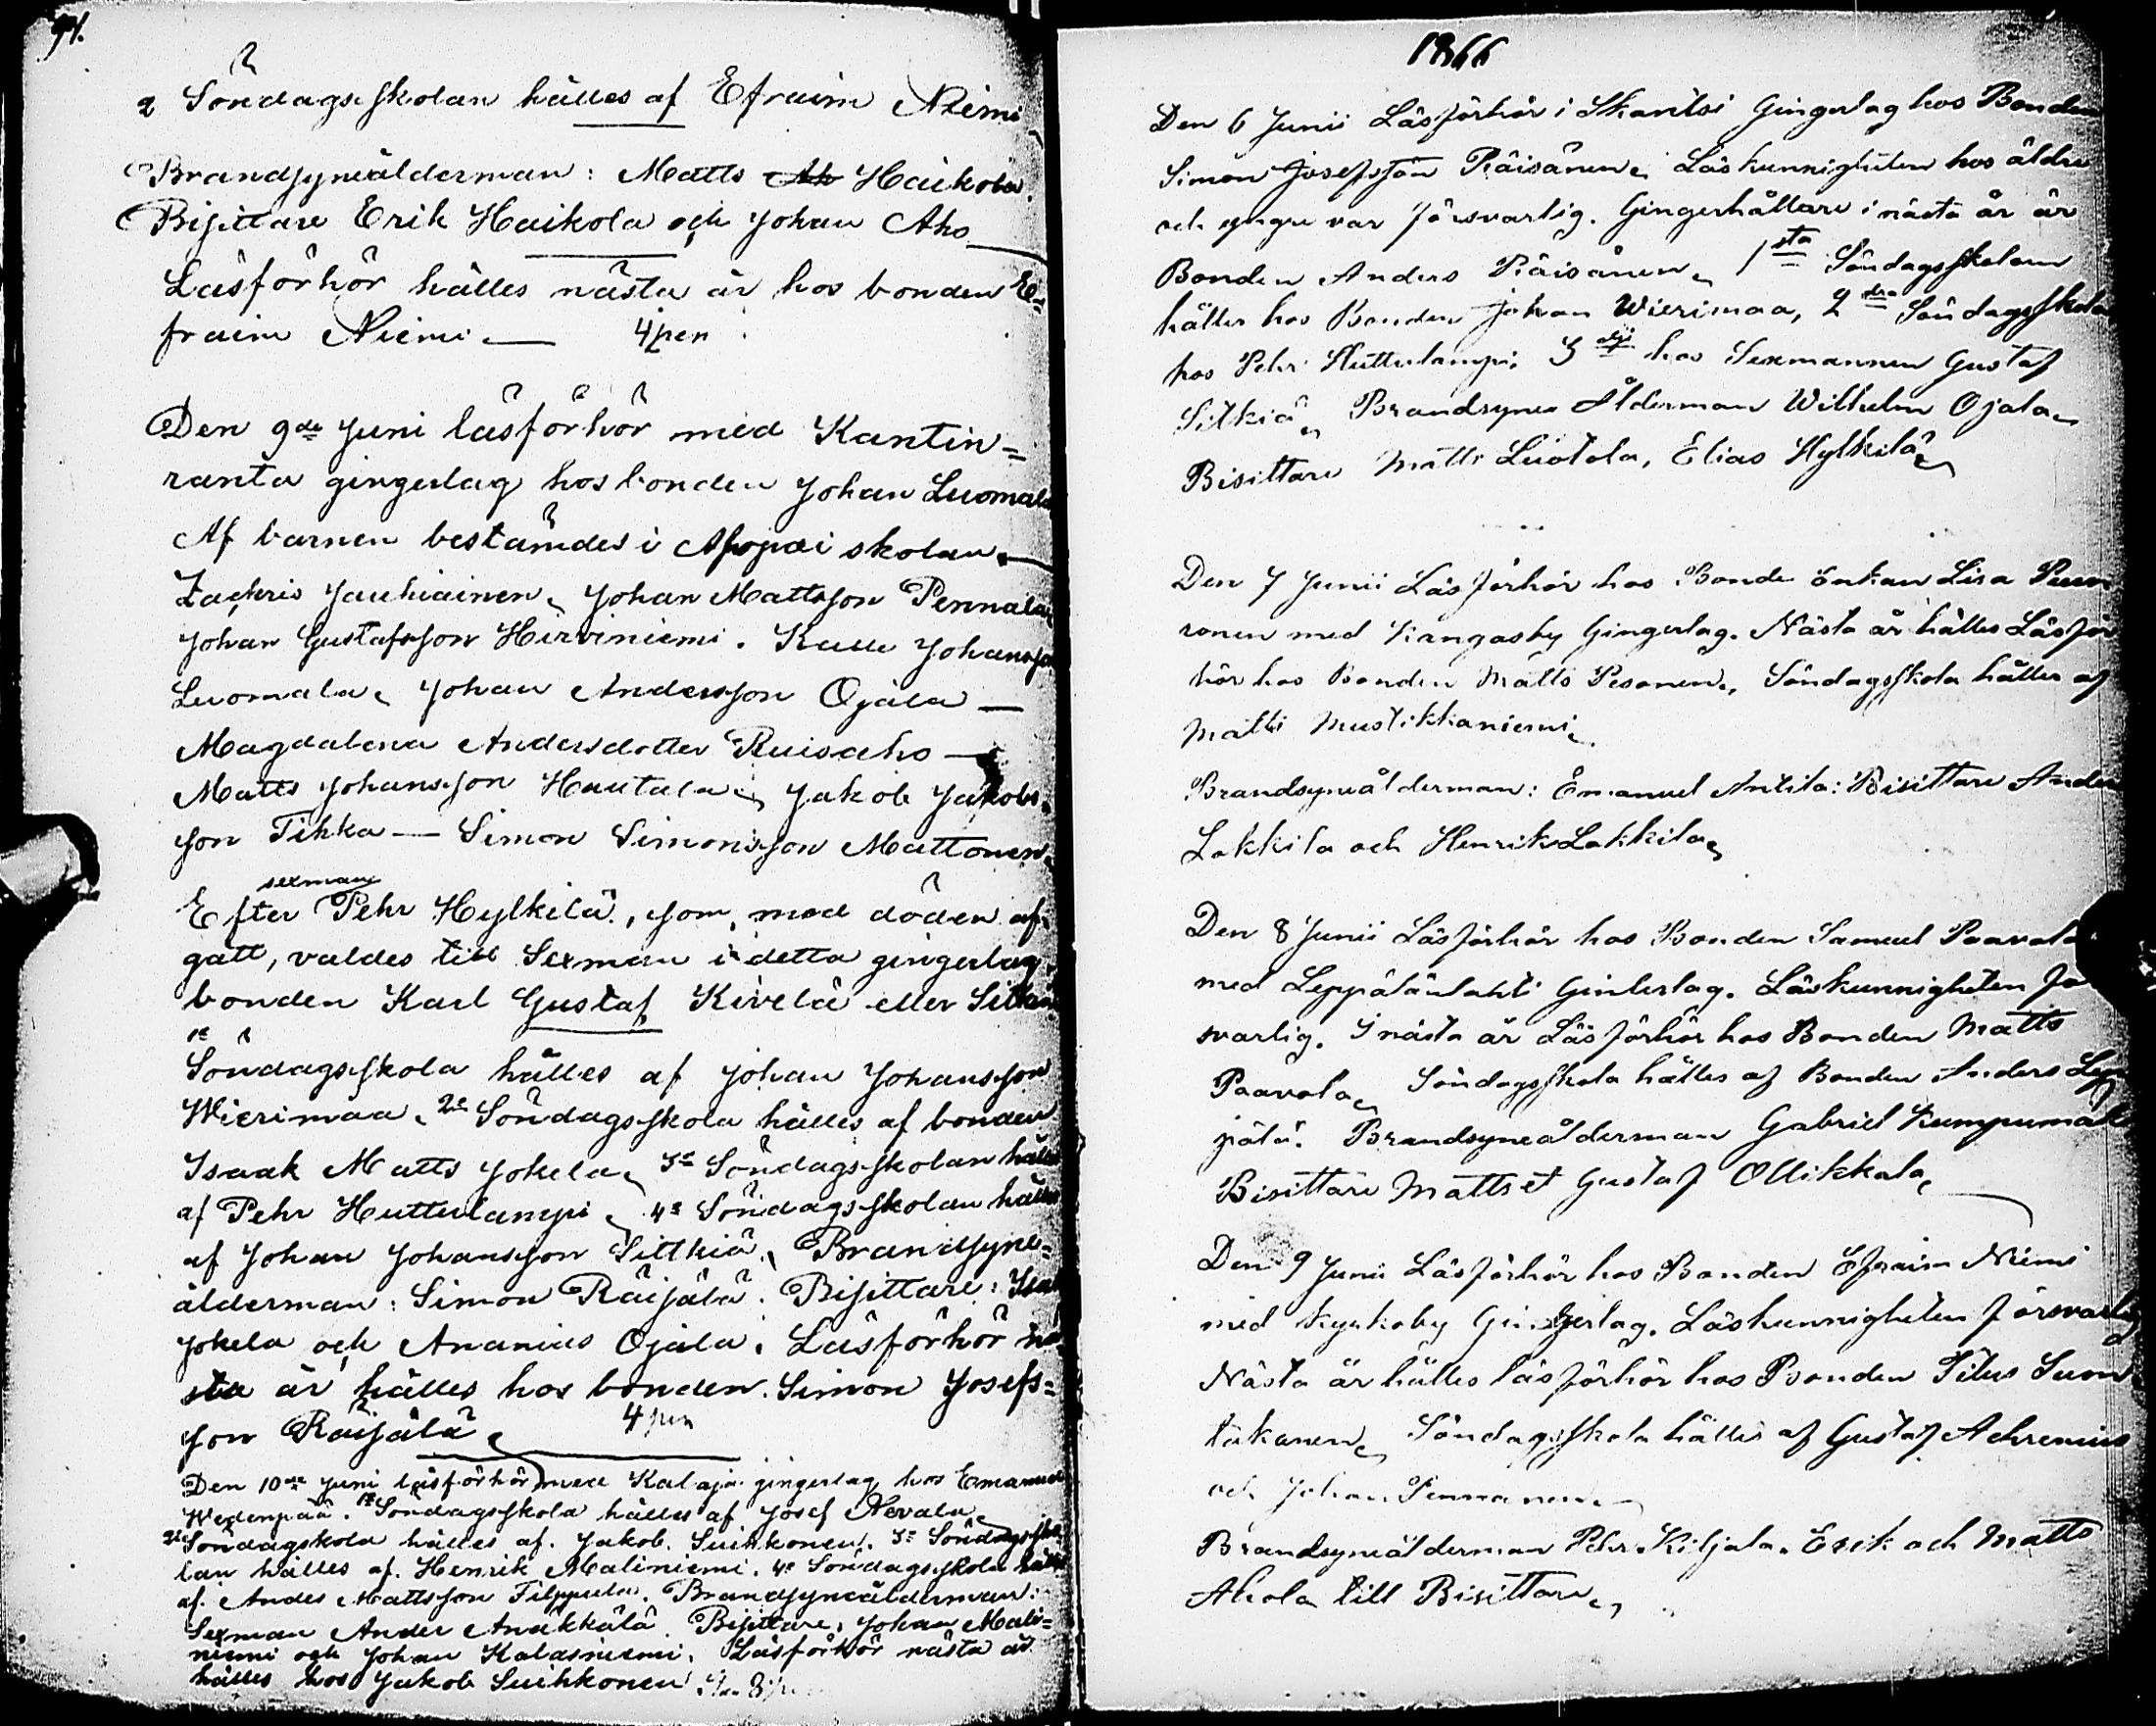 91.
2 Söndagsskolan hålles af Efraim Niemi
Brandsyneålderman: Matts Haikola
Bisittare Erik Haikola och Johan Aho
Läsförhör hålles nästa år hos bonden E=
fraim Niemi. 4 pen
Den 9de Juni läsförhör med Kantin=
ranta gingerlag hos bonden Johan Luomala
Af barnen bestämdes i skolan
Zachris Jauhiainen, Johan Mattsson Pennala
Johan Gustafsson Hirviniemi. Kalle Johansson
Luomala, Johan Andersson Ojala —
Magdalena Andersdotter Ruisaho —
Matts Johansson Hautala, Jakob Jakobs=
son Tihka — Simon Simonsson Mattonen.
sexman
Efter Pehr Hylkilä, som med döden af=
gått, valdes till Sexman i detta gingerlag
bonden Karl Gustaf Kivelä eller Sitkiä
1e
Söndagsskola hålles af Johan Johansson
Wierimaa, 2e Söndagsskola hålles af bonden
Isaak Matts Jokela, 3e Söndagsskolan hålles
af Pehr Hutterlampi, 4e Söndagsskolan hålles
af Johan Johansson Sittkiä, Brandsyne=
ålderman: Simon Räisälä. Bisittare: Isak
Jokela och Ananias Ojala. Läsförhör nä=
sta år hålles hos bonden Simon Josefs=
son Räisälä. 4 pen
Den 10de Juni läsförhör med Kalaja gingerlag hos Emanuel
Wedenpää. 1e Söndagsskola hålles af Josef Nevala
2e Söndagskola hålles af Jakob Suihkonen. 3e Söndagssko
lan hålles af Henrik Maliniemi. 4e Söndagsskola hålles
af Andes Mattsson Filppula. Brandsyneålderman:
Sexman Ander Anäkkälä. Bisittare: Johan Mali=
niemi och Johan Kalasniemi. Läsförhör nästa år
hålles hos Jakob Suihkonen
1866
Den 6 Junii Läsförhör i Skantsi Gingerlag hos Bonden
Simon Josefsson Räisänen. Läskunnigheten hos äldre
och yngre var försvarlig. Gingerhållare i nästa år är
Bonden Anders Räisänen, 1sta Söndagsskolan
hålles hos Bonden Johan Wierimaa, 2dra Söndagsskola
hos Pehr Hutterlampi, 3dje hos Sexmannen Gustaf
Sitkiä, Brandsynes Ålderman Wilhelm Ojala
Bisittare Matts Luotola, Elias Hylkilä
Den 7 Junii Läsförhör hos Bonde Enkan Lisa Puu
ronen med Kangasby Gingerlag. Nästa år hålles Läsför
hör hos Bonden Matts Pesonen, Söndagsskola hålles af
Matts Mustikkaniemi.
Brandsyneålderman: Emanuel Antila: Bisittare Ander
Lakkila och Henrik Lakkila
Den 8 Junii Läsförhör hos Bonden Samuel Paavola
med Leppälänlahti Ginterlag. Läskunnigheten för
svarlig. I nästa år Läsförhör hos Bonden Matts
Paavola, Söndagsskola hålles af Bonden Anders Lep
pälä. Brandsyneålderman Gabriel Kumpumäki
Bisittare Matts et Gustaf Ollikkala,
Den 9 Junii Läsförhör hos Bonden Efraim Niemi
med Kyrkoby Gingerlag. Läskunnigheten försvarlig
Nästa år hålles läsförhör hos Bonden Titus Suon
takanen, Söndagsskola hålles af Gustaf Achrenius
och Johan Pennanen.
Brandsyneålderman Pehr Kiljala. Erik och Matts
Ahola till Bisittare,